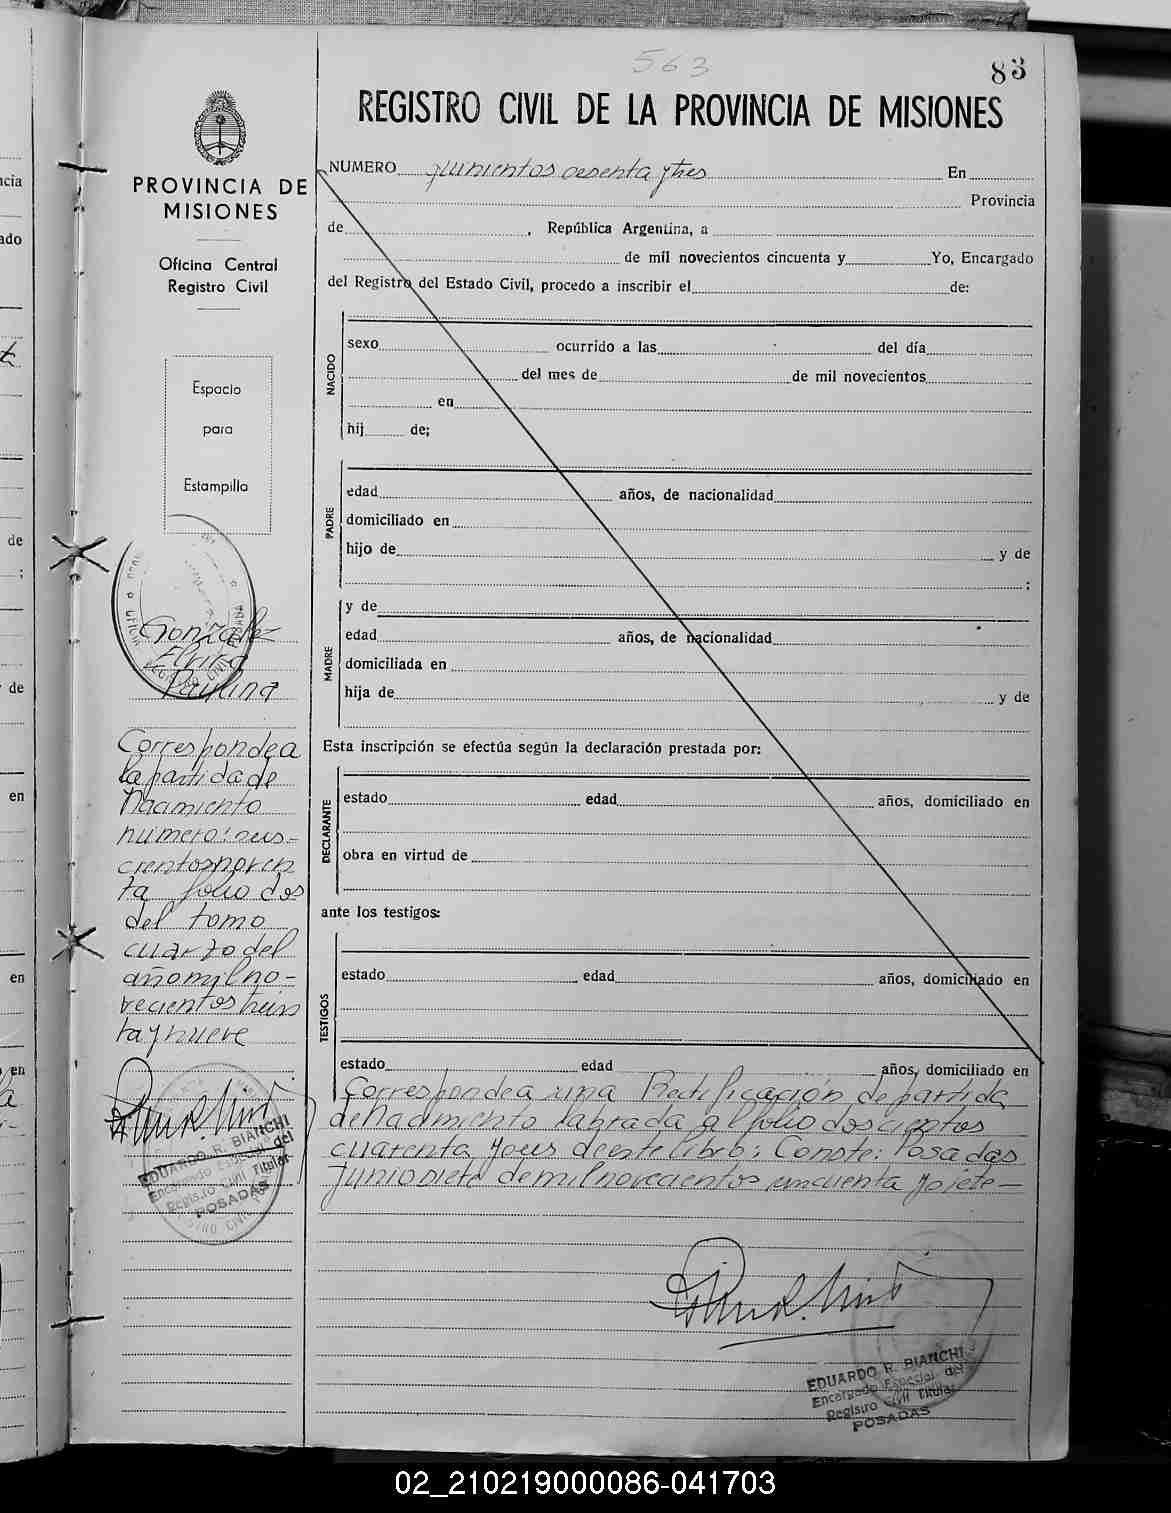 563
83
REGISTRO CIVIL DE LA PROVINCIA DE MISIONES
NUMERO quinientos sesenta y tres En
Provincia
de , República Argentina, a
de mil novecientos cincuenta y Yo, Encargado
del Registro del Estado Civil, procedo a inscribir el de:
NACIDO
sexo ocurrido a las del día
del mes de de mil novecientos
en
hij de;
PADRE
edad años, de nacionalidad
domiciliado en
hijo de y de
;
MADRE
y de
edad años, de nacionalidad
domiciliada en
hija de y de
Esta inscripción se efectúa según la declaración prestada por:
DECLARANTE
estado edad años, domiciliado en
obra en virtud de
ante los testigos:
TESTIGOS
estado edad años, domiciliado en
estado edad años, domiciliado en
Corresponde a una Rectificación de partida
de Nacimiento labrada al folio doscientos
cuarenta y seis de este libro; Conste: Posadas
Junio siete de mil novecientos cincuenta y siete-
EDUARDO R. BIANCHI
Encargado Especial del
Registro Civil Titular
POSADAS
PROVINCIA DE
MISIONES
Oficina Central
Registro Civil
Espacio
para
Estampilla
Gonzalez
Elvira
Paulina
Corresponde a
la partida de
Nacimiento
numero: seis-
cientos noven
ta folio dos
del tomo
cuarto del
año mil no-
vecientos trein
ta y nueve
EDUARDO R. BIANCHI
Encargado Especial del
Registro Civil Titular
POSADAS
cia
ado
de
;
de
en
en
en
02_210219000086-041703